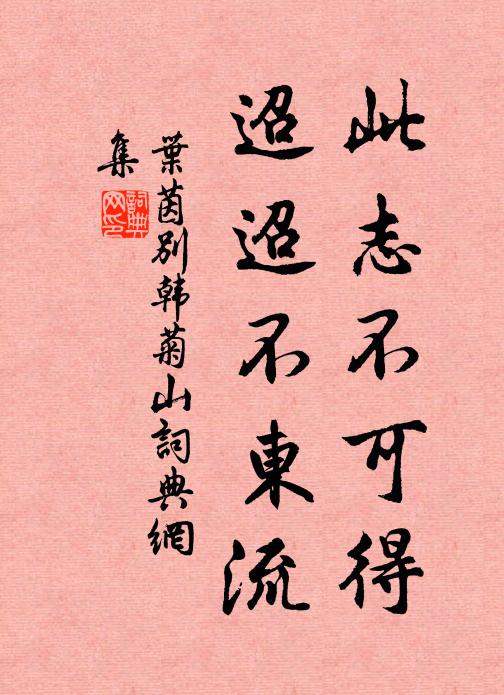 此志不可得
迢迢不東流
葉茵別韩菊山詞典網
集
詞典
网印